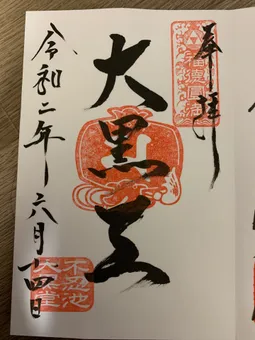 奉拝
大黒天
令和二年六月十四日
不忍池
大黒堂